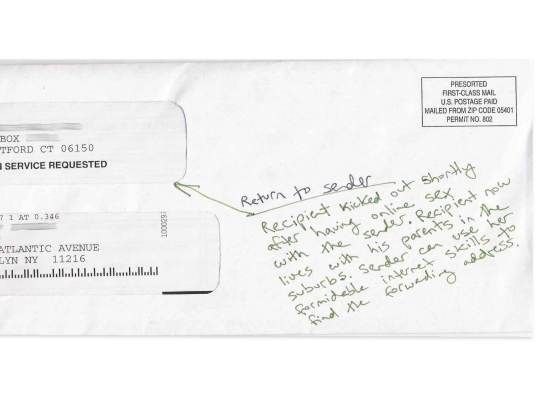 PRESORTED
FIRST-CLASS MAIL
U.S. POSTAGE PAID
MAILED FROM ZIP CODE 05401
PERMIT NO. 802
BOX
TFORD CT 06150
SERVICE REQUESTED
7 1 AT 0.346
ATLANTIC AVENUE
LYN NY 11216
Return to sender
Recipient kicked out shortly
after having online sex
with the sender. Recipient now
lives with his parents in the
suburbs. Sender can use her
formidable internet skills to
find the forwarding address.